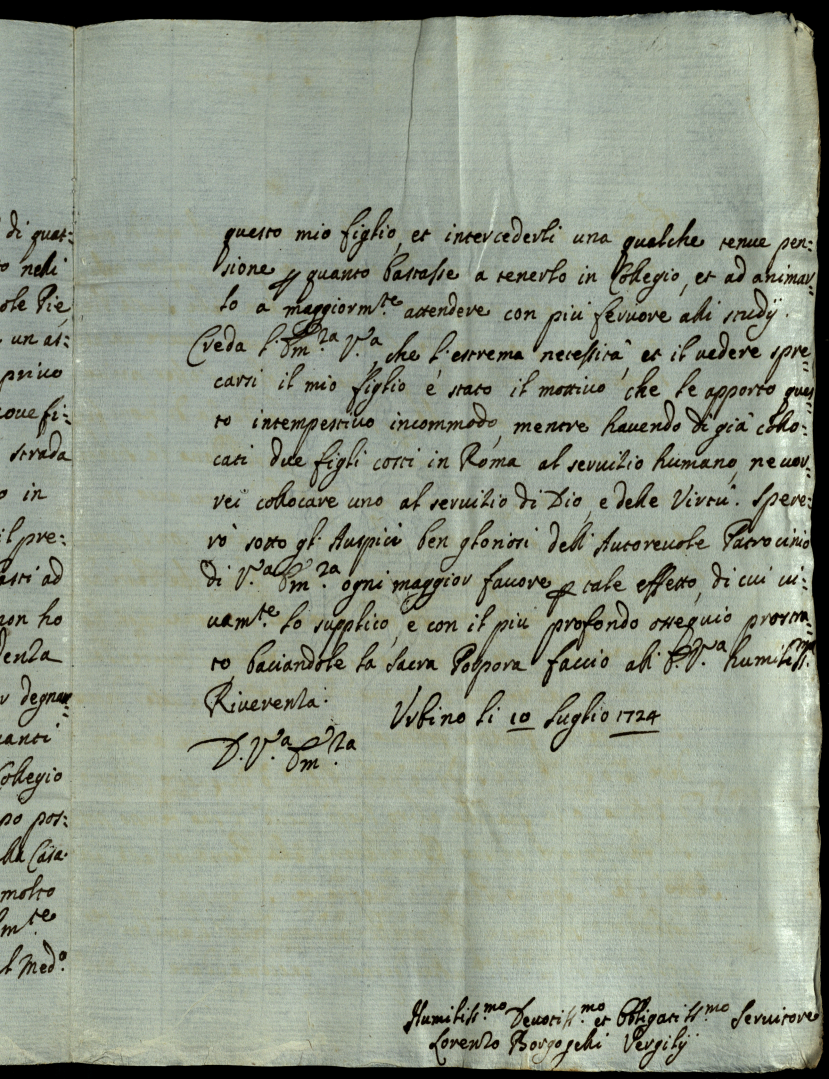 di quat:
to nelli
ole Pie
un at:
privo
ove fi:
strada
o in
il pre:
asti ad
non ho
denza
r degnar
vanti
Collegio
po pos:
lla Casa
molto
m.te
l Med.o
questo mio figlio, et intercederli una qualche tenue pen:
sione p quanto bastasse a tenerlo in Collegio, et ad animar:
lo a maggiorm.te attendere con più fervore alli studÿ.
Creda l'Em.za V.a, che l'estrema necessità, et il vedere spre:
carsi il mio figlio è stato il mottivo che le apporto ques
to intempestivo incommodo, mentre havendo di già collo:
cati due figli costì in Roma al servitio humano, ne vor:
rei collocare uno al servitio di Dio, e delle Virtù. Spere:
rò sotto gl'Auspici ben gloriosi dell'Autorevole Patrocinio
di V.a Em.za ogni maggior favore p tale effetto, di cui vi:
vam.te lo supplico, e con il più profondo ossequio prostra:
to baciandole la Sacra Porpora faccio all'E. V.a humiliss.ma
Riverenza.
Urbino li 10 Luglio 1724
D. V.a Em.za
Humiliss.mo Devotiss.mo et Obligatiss.mo Servitore
Lorenzo Borgogelli Vergilÿ